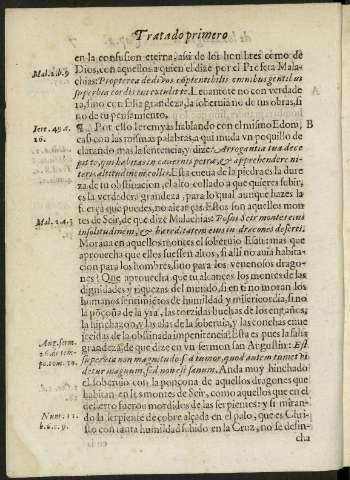 Tratado primero
en la confusion eterna, assi de los hombres como de
Dios, con aquellos a quien el dize por el Profeta Mala-
chias: Propterea dedi vos cõptentibiles omnibus gentibus
superbia cordis tui extulit te. Leuantote no con verdade
ra, sino con falsa grandeza, la soberuia no de tus obras, si
no de tu pensamiento.
¶ Por esso Ieremyas hablando con el mismo Edom,
casi con las mismas palabras, aqui muda vn poquillo de
clatando mas la sentencia, y dize: Arrogantia tua dece
pit te, qui habitas in cauernis petræ, & apprehendere ni-
teris altitudinem collis. Esta cueua de la piedra es la dure
za de tu obstinacion, el alto collado a que quieres subir,
es la verdadera grandeza, para lo qual aunque hazes la
fuerça que puedes, no alcãças. Estos son aquellos mon-
tes de Seir, de que dize Malachias: Posui Seir montes eius
in solitudinem, & hæreditatem eius in dracones deserti.
Moraua en aquellos montes el soberuio Esau: mas que
aprouecha que ellos fuessen altos, si alli no auia habita-
cion para los hombres, sino para los venenosos drago-
nes? Que aprouecha que tu alcances los montes de las
dignidades y riquezas del mundo, si en ti no moran los
humanos sentimiẽtos de humildad y misericordia, sino
la põçoña de la yra, las torzidas bueltas de los engaños,
la hinchazon, y las alas de la soberuia, y las conchas empe
dernidas de la obstinada impenitencia? Esta es pues la falsa
grandeza, de que dize en vn sermon san Augustin: Est
superbia non magnitudo, sed tumor, quod autem tumet vi
detur magnum, sed non est sanum. Anda muy hinchado
el soberuio con la ponçoña de aquellos dragones que
habitan en los montes de Seir, como aquellos que en el
desierto fueron mordidos de las serpientes: y si miran-
do la serpiente de cobre alçada en el palo, que es Chri-
sto con tanta humildad subido en la Cruz, no se desin-
cha
Mal. 2. b. 9
Iere. 49. c.
16.
Mal. 1. a. 3
Aug. serm.
16. de tem-
po. tom. 10.
Num. 21.
b. 8. c. 9.
B